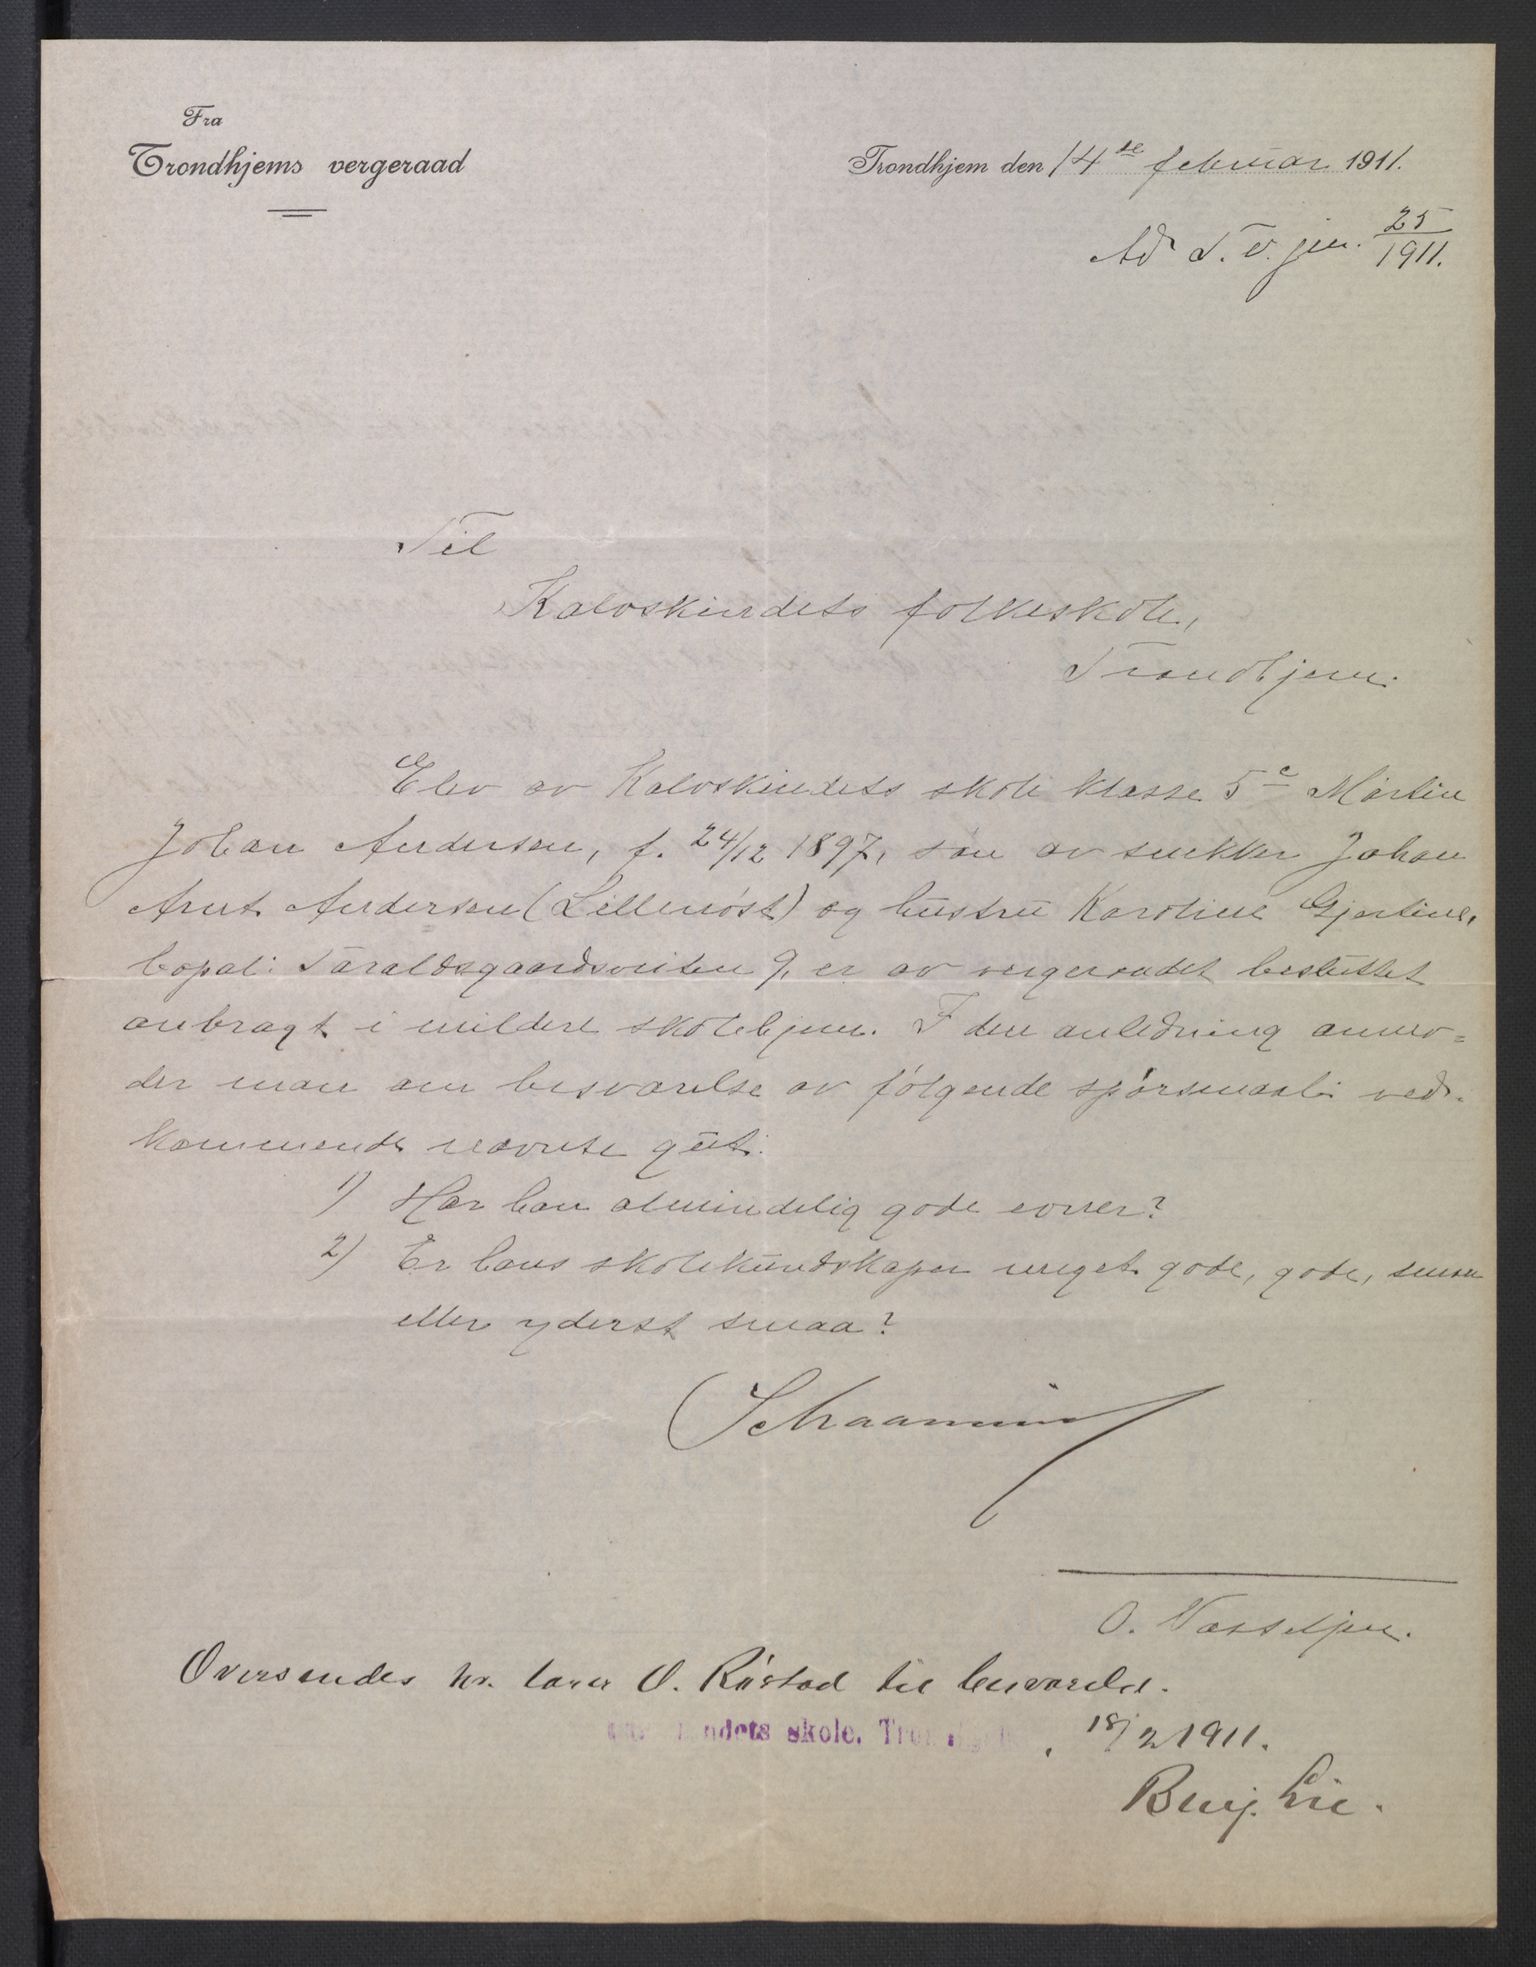 Fra
Trondhjems vergeraad
Trondhjem den 14de februar 1911.
Ad T. v. jnr. 25/1911.
Til
Kalvskindets folkeskole,
Trondhjem.
Elev av Kalvskindets skole klasse 5c Martin
Johan Andersen, f. 24/12 1897, søn av snekker Johan
Arnt Andersen (Lillemost) og hustru Karoline Gjertine,
bopæl: Taraldsgaardsveiten 9, er av vergeraadet besluttet
anbragt i mildere skolehjem. I den anledning anmo-
der man om besvarelse av følgende spørsmaal ved-
kommende nævnte gut:
1) Har han almindelig gode evner?
2) Er hans skolekundskaper meget gode, gode, smaa
eller yderst smaa?
Schaanning
O. Vasseljen.
Oversendes hr. lærer O. Røstad til besvarelse.
ndets skole. Tro , 18/2 1911.
Benj. Lie.